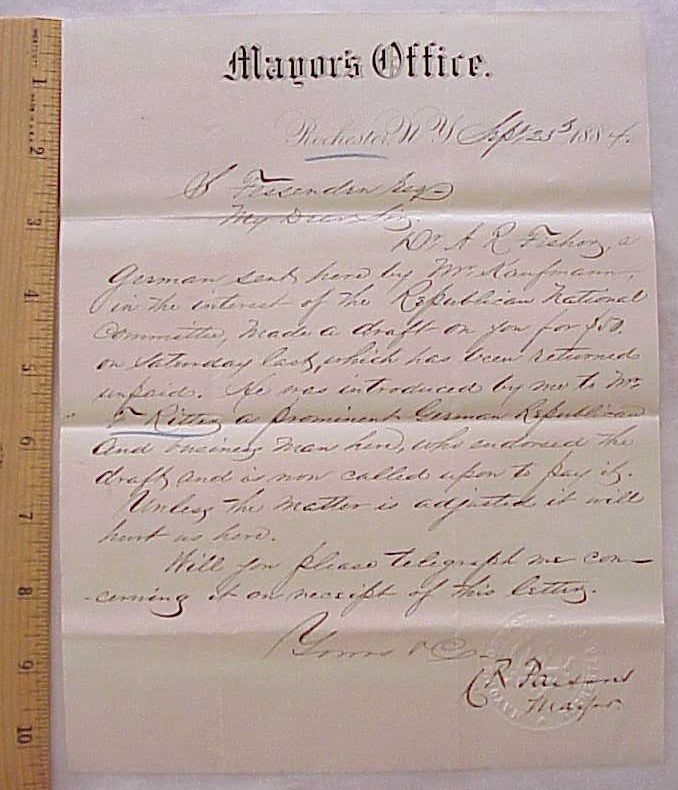 Mayor's Office.
Rochester, N.Y. Sept 25th 1884.
S Fessenden Esq
My Dear Sir.
Dr A R Fishog, a
German sent here by Mr Kaufmann,
in the interest of the Republican National
Committee, made a draft on you for $50.
on Saturday last, which has been returned
unpaid. He was introduced by me to Mr
F Ritter a prominent German Republican
and business man here, who endorsed the
draft, and is now called upon to pay it.
Unless the matter is adjusted it will
hurt us here.
Will you please telegraph me con-
-cerning it on receipt of this letter.
Yours &c.
C R Parsons
Mayor
1
2
3
4
5
6
7
8
9
10